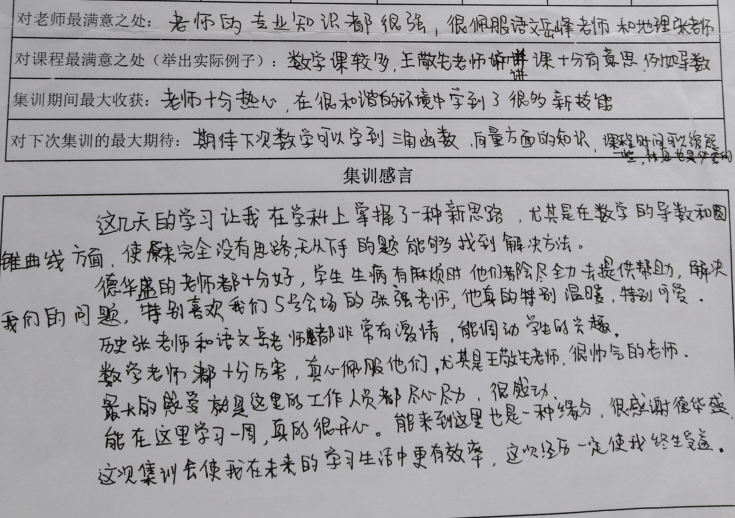 对老师最满意之处：老师的专业知识都很强，很佩服语文岳峰老师和地理张老师
对课程最满意之处（举出实际例子）：数学课较多，王敬先老师讲课十分有意思，例如导数
集训期间最大收获：老师十分热心，在很和谐的环境中学到了很多新技能
对下次集训的最大期待：期待下次数学可以学到三角函数，向量方面的知识，课程时间可以缩短
一些，休息也是必要的
集训感言
这几天的学习让我在学科上掌握了一种新思路，尤其是在数学的导数和圆
锥曲线方面，使原来完全没有思路无从下手的题能够找到解决方法。
德华盛的老师都十分好，学生生病有麻烦时他们都会尽全力去提供帮助，解决
我们的问题，特别喜欢我们5号会场的张强老师，他真的特别温暖，特别可爱．
历史张老师和语文岳老师都非常有激情，能调动学生的兴趣。
数学老师都十分厉害，真心佩服他们，尤其是王敬先老师，很帅气的老师．
最大的感受就是这里的工作人员都尽心尽力，很感动．
能在这里学习一周，真的很开心。能来到这里也是一种缘分，很感谢德华盛．
这次集训会使我在未来的学习生活中更有效率，这次经历一定使我终生受益。